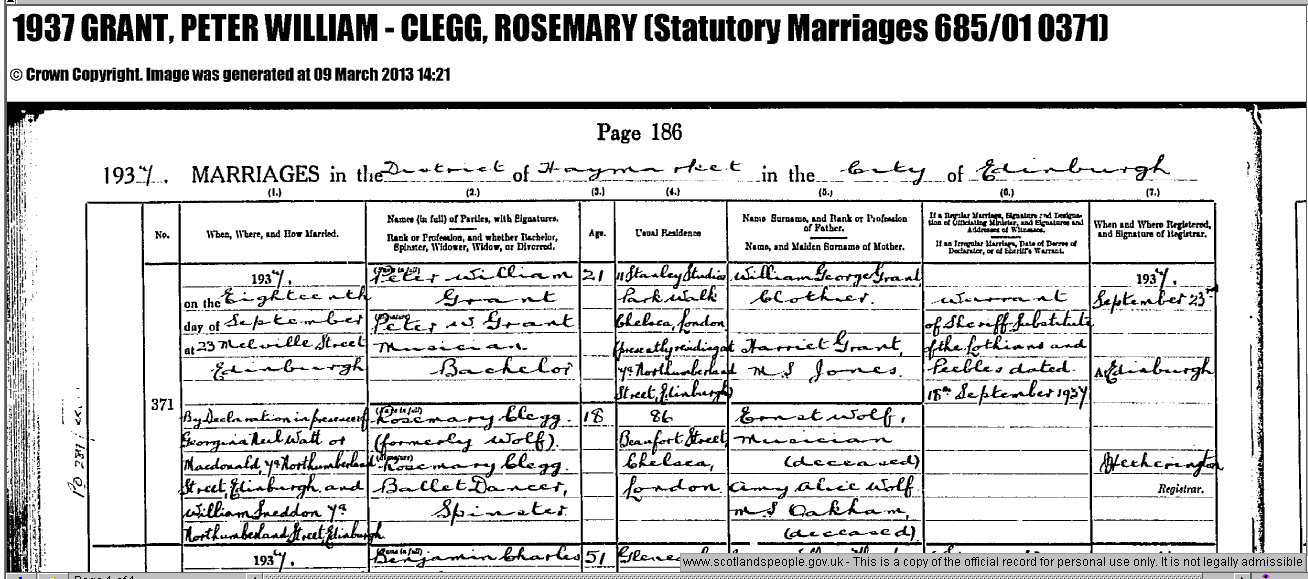 1937 GRANT, PETER WILLIAM - CLEGG, ROSEMARY (Statutory Marriages 685/01 0371)
© Crown Copyright. Image was generated at 09 March 2013 14:21
Page 186
1937. MARRIAGES in the District of Haymarket in the City of Edinburgh
(1.) (2.) (3.) (4.) (5.) (6.) (7.)
No.
When, Where, and How Married.
Names (in full) of Parties, with Signatures.
Rank or Profession, and whether Bachelor,
Spinster, Widower, Widow, or Divorced.
Age.
Usual Residence
Name Surname, and Rank or Profession
of Father.
Name, and Maiden Surname of Mother.
If a Regular Marriage, Signature and Designa-
tion of Officiating Minister, and Signatures and
Addresses of Witnesses.
If an Irregular Marriage, Date of Decree of
Declarator, or of Sheriff's Warrant.
When and Where Registered,
and Signature of Registrar.
371
1937.
on the Eighteenth
day of September
at 23 Melville Street
Edinburgh
By Declaration in presence of
Georgina Neil Watt or
Macdonald, 7a Northumberland
Street, Edinburgh and
William Sneddon 7a
Northumberland Street, Edinburgh
(Name in full)
Peter William
Grant
(Signature)
Peter W. Grant
Musician.
Bachelor
21
11 Stanley Studios
Park Walk
Chelsea, London
(presently residing at
7a Northumberland
Street, Edinburgh)
William George Grant
Clothier.
Harriet Grant,
M.S Jones.
Warrant
of Sheriff Substitute
of the Lothians and
Peebles dated
18th September 1937
1937.
September 23rd
At Edinburgh
(Name in full)
Rosemary Clegg.
(formerly Wolf).
(Signature)
Rosemary Clegg.
Ballet Dancer,
Spinster
18
86
Beaufort Street,
Chelsea,
London.
Ernst Wolf,
Musician
(deceased)
Amy Alice Wolf
M.S Oakham,
(deceased)
Registrar.
1937.
(Name in full)
Benjamin Charles
51
www.scotlandspeople.gov.uk - This is a copy of the official record for personal use only. It is not legally admissible
Page 1 of 1